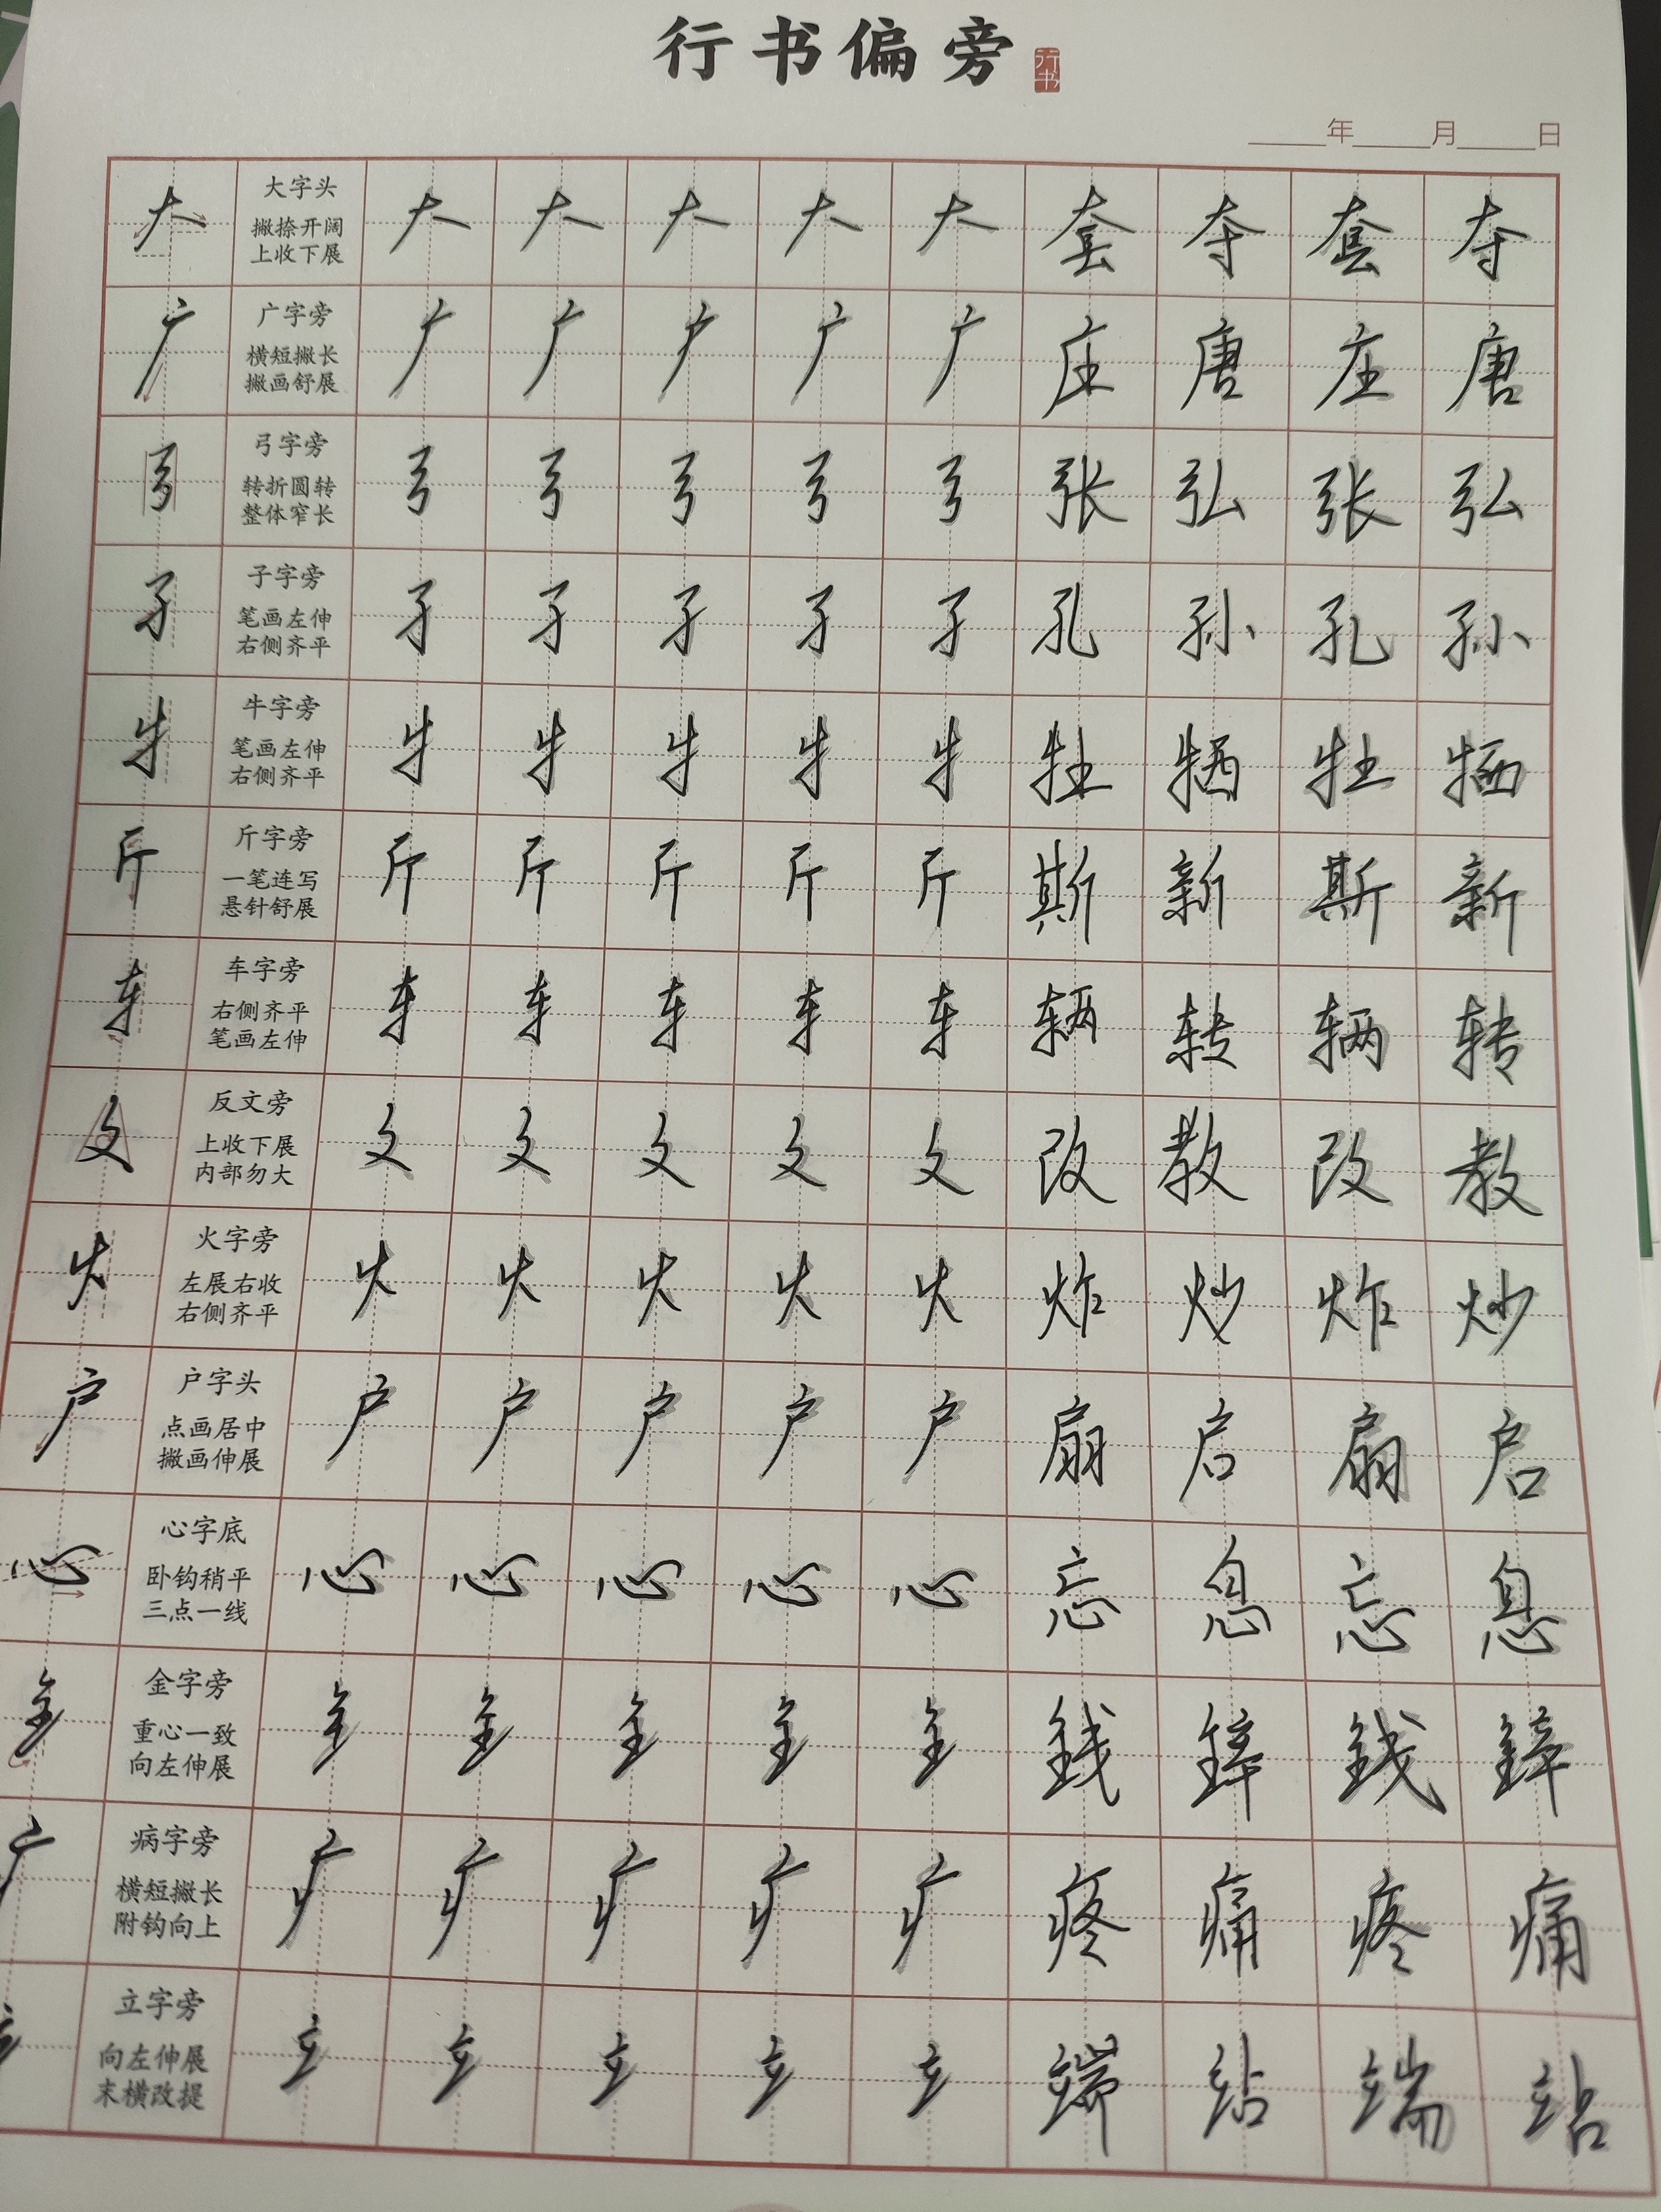 行书偏旁 行书
年 月 日
大 大字头 撇捺开阔 上收下展 大 大 大 大 大 套 夺 套 夺
广 广字旁 横短撇长 撇画舒展 广 广 广 广 广 庄 唐 庄 唐
弓 弓字旁 转折圆转 整体窄长 弓 弓 弓 弓 弓 张 弘 张 弘
子 子字旁 笔画左伸 右侧齐平 子 子 子 子 子 孔 孙 孔 孙
牛 牛字旁 笔画左伸 右侧齐平 牛 牛 牛 牛 牛 牡 牺 牡 牺
斤 斤字旁 一笔连写 悬针舒展 斤 斤 斤 斤 斤 斯 新 斯 新
车 车字旁 右侧齐平 笔画左伸 车 车 车 车 车 辆 转 辆 转
攵 反文旁 上收下展 内部勿大 攵 攵 攵 攵 攵 改 教 改 教
火 火字旁 左展右收 右侧齐平 火 火 火 火 火 炸 炒 炸 炒
户 户字头 点画居中 撇画伸展 户 户 户 户 户 扇 启 扇 启
心 心字底 卧钩稍平 三点一线 心 心 心 心 心 忘 息 忘 息
金 金字旁 重心一致 向左伸展 金 金 金 金 金 銭 鋅 銭 鋅
疒 病字旁 横短撇长 附钩向上 疒 疒 疒 疒 疒 疼 痛 疼 痛
立 立字旁 向左伸展 末横改提 立 立 立 立 立 端 站 端 站